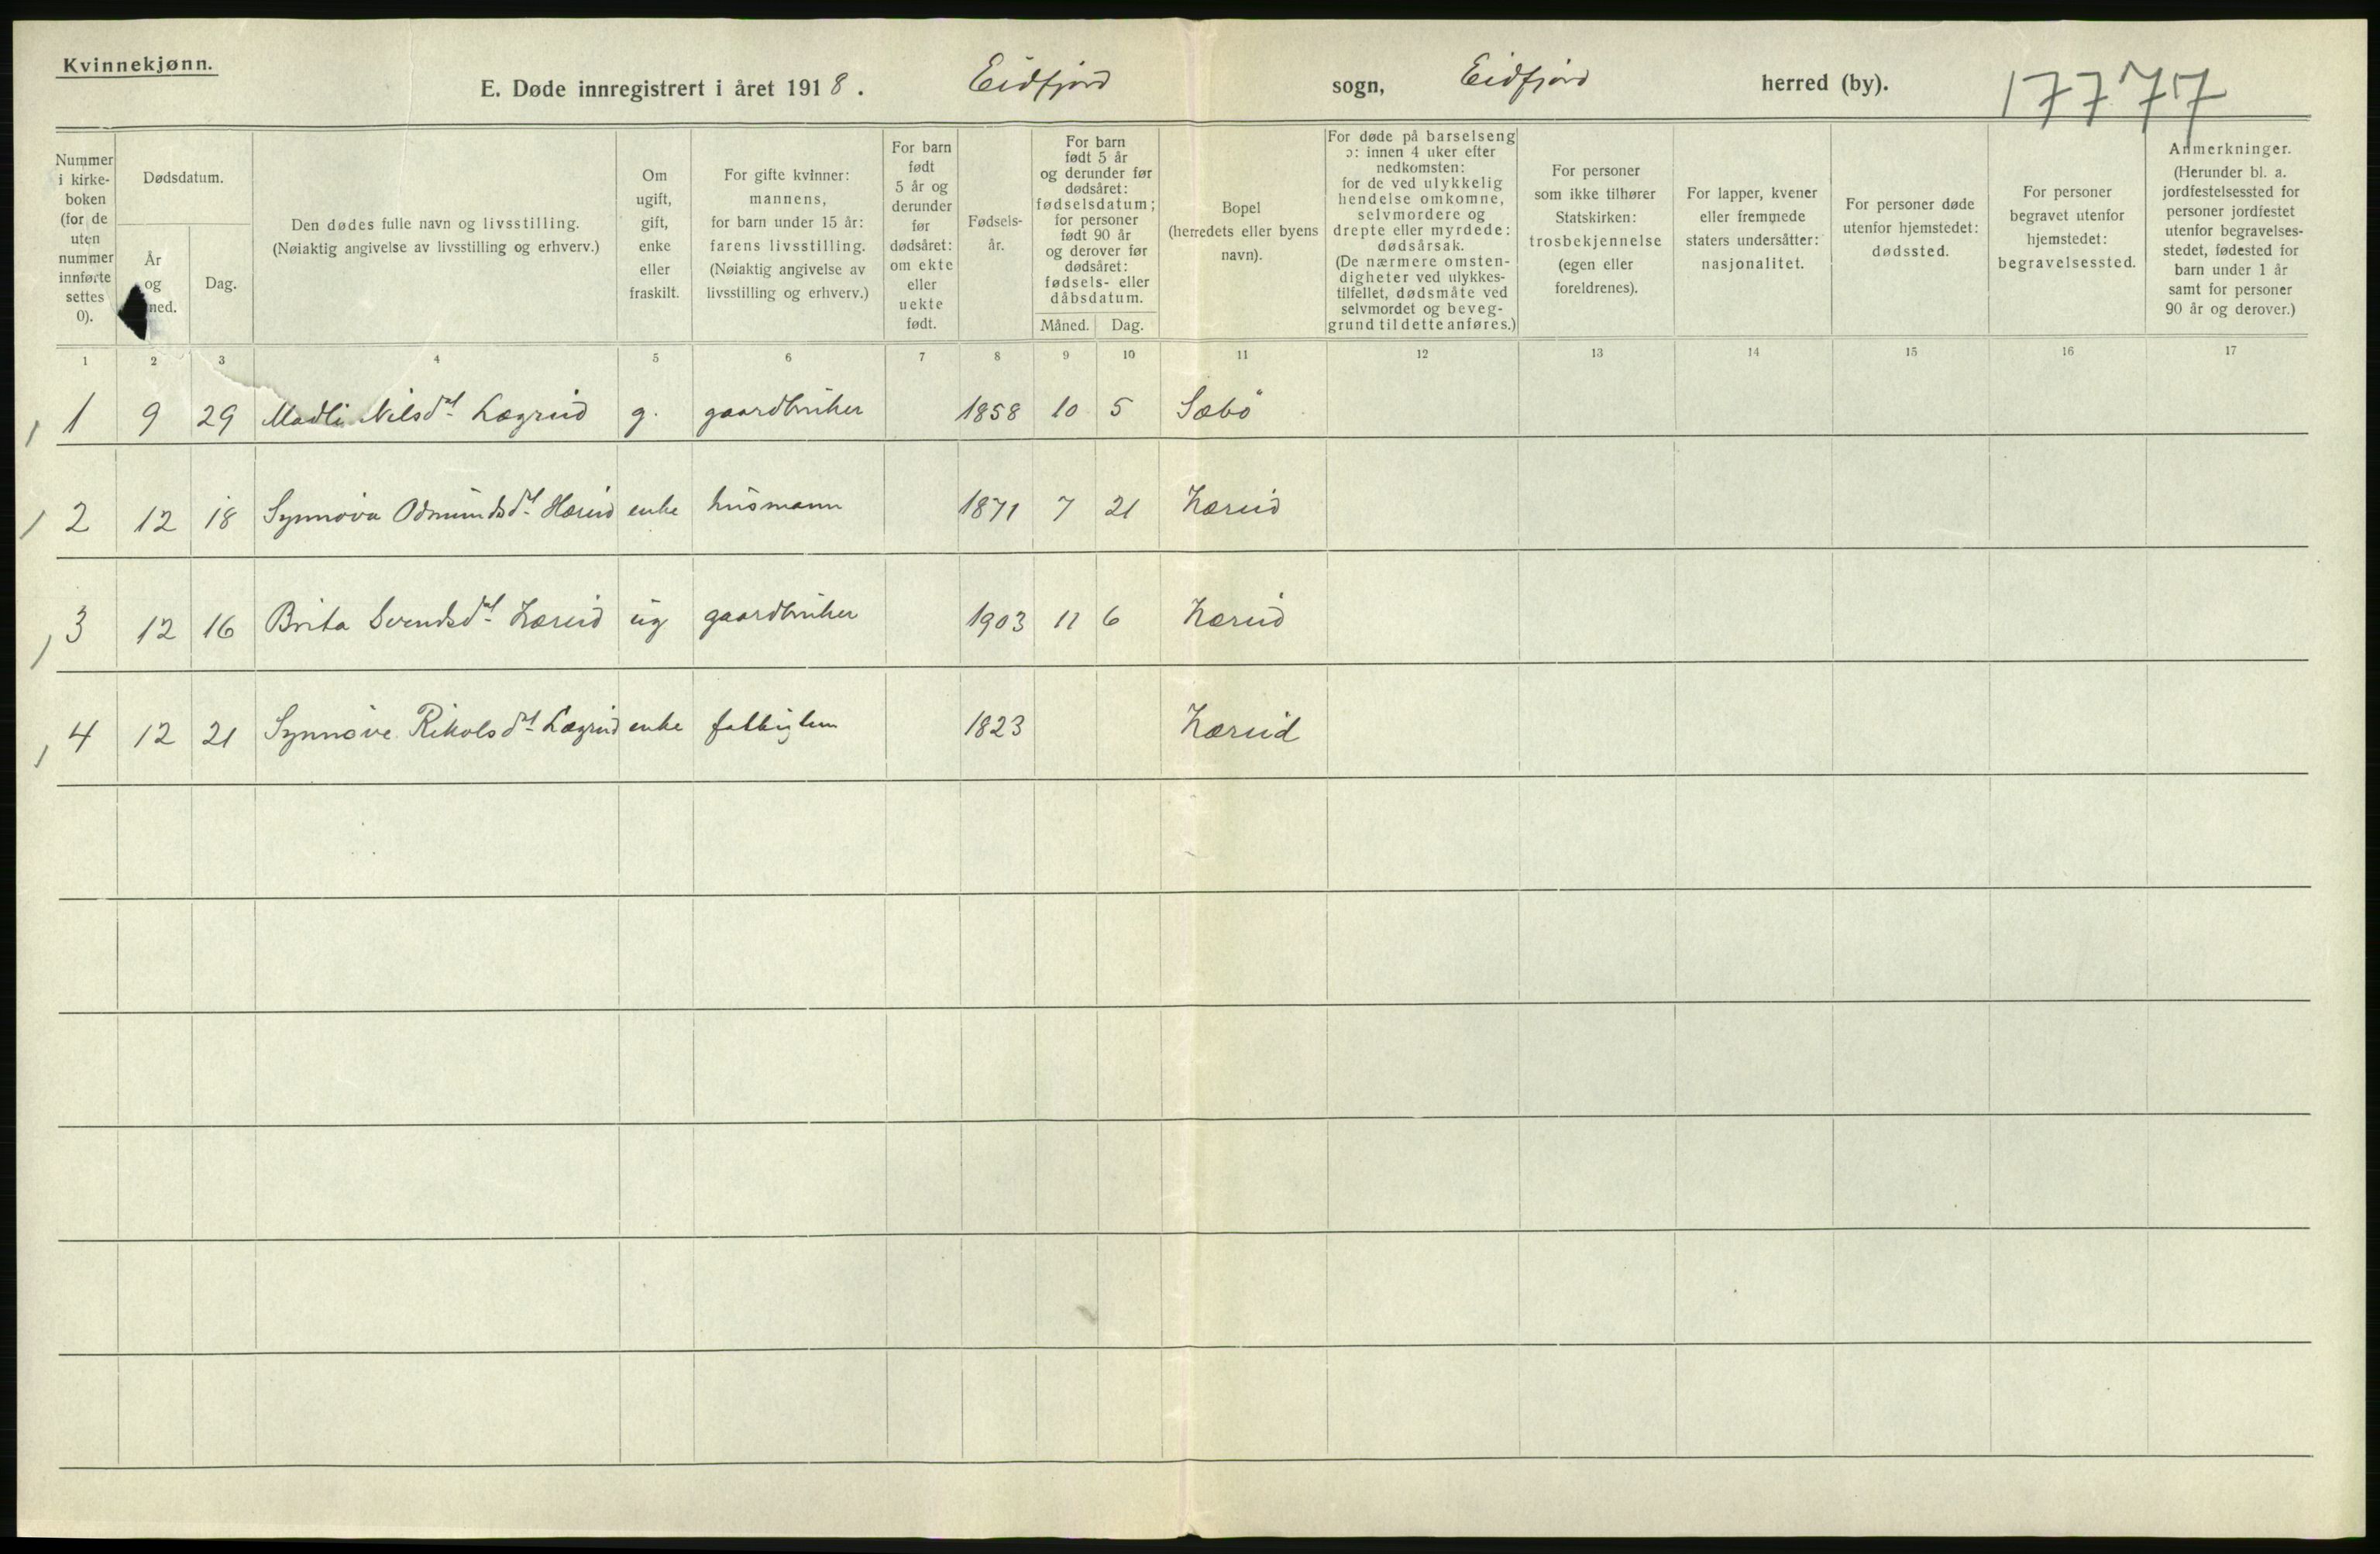 Kvinnekjønn.
E. Døde innregistrert i året 1918. Eidfjord sogn, Eidfjord herred (by). 17777
Nummer i kirke-boken (for de uten nummer innførte settes 0).
Dødsdatum.
År og ned.
Dag.
Den dødes fulle navn og livsstilling.
(Nøiaktig angivelse av livsstilling og erhverv.)
Om ugift, gift, enke eller fraskilt.
For gifte kvinner: mannens, for barn under 15 år: farens livsstilling. (Nøiaktig angivelse av livsstilling og erhverv.)
For barn født 5 år og derunder før dødsåret: om ekte eller uekte født.
Fødsels-år.
For barn født 5 år og derunder før dødsåret: fødselsdatum; for personer født 90 år og derover før dødsåret: fødsels- eller dåbsdatum.
Måned. Dag.
Bopel (herredets eller byens navn).
For døde på barselseng ɔ: innen 4 uker efter nedkomsten: for de ved ulykkelig hendelse omkomne, selvmordere og drepte eller myrdede: dødsårsak. (De nærmere omsten-digheter ved ulykkes-tilfellet, dødsmåte ved selvmordet og beveg-grund til dette anføres.)
For personer som ikke tilhører Statskirken: trosbekjennelse (egen eller foreldrenes).
For lapper, kvener eller fremmede staters undersåtter: nasjonalitet.
For personer døde utenfor hjemstedet: dødssted.
For personer begravet utenfor hjemstedet: begravelsessted.
Anmerkninger. (Herunder bl. a. jordfestelsessted for personer jordfestet utenfor begravelses-stedet, fødested for barn under 1 år samt for personer 90 år og derover.)
1 2 3 4 5 6 7 8 9 10 11 12 13 14 15 16 17
1 9 29 Madli Nilsdt. Lægreid g. gaardbruker 1858 10 5 Sæbö
2 12 18 Synnøva Odmundsdt. Hæreid enke husmann 1871 7 21 Hæreid
3 12 16 Brita Svendsdt. Hæreid ug gaardbruker 1903 11 6 Hæreid
4 12 21 Synnøve Rikolsdt. Lægreid enke fattiglem 1823 Hæreid